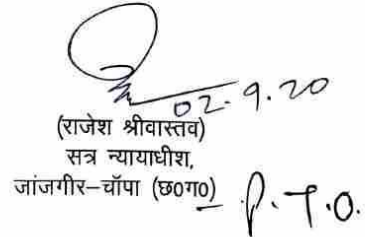 02.9.20
(राजेश श्रीवास्तव)
सत्र न्यायाधीश,
जांजगीर–चॉपा (छ0ग0)
P.T.O.